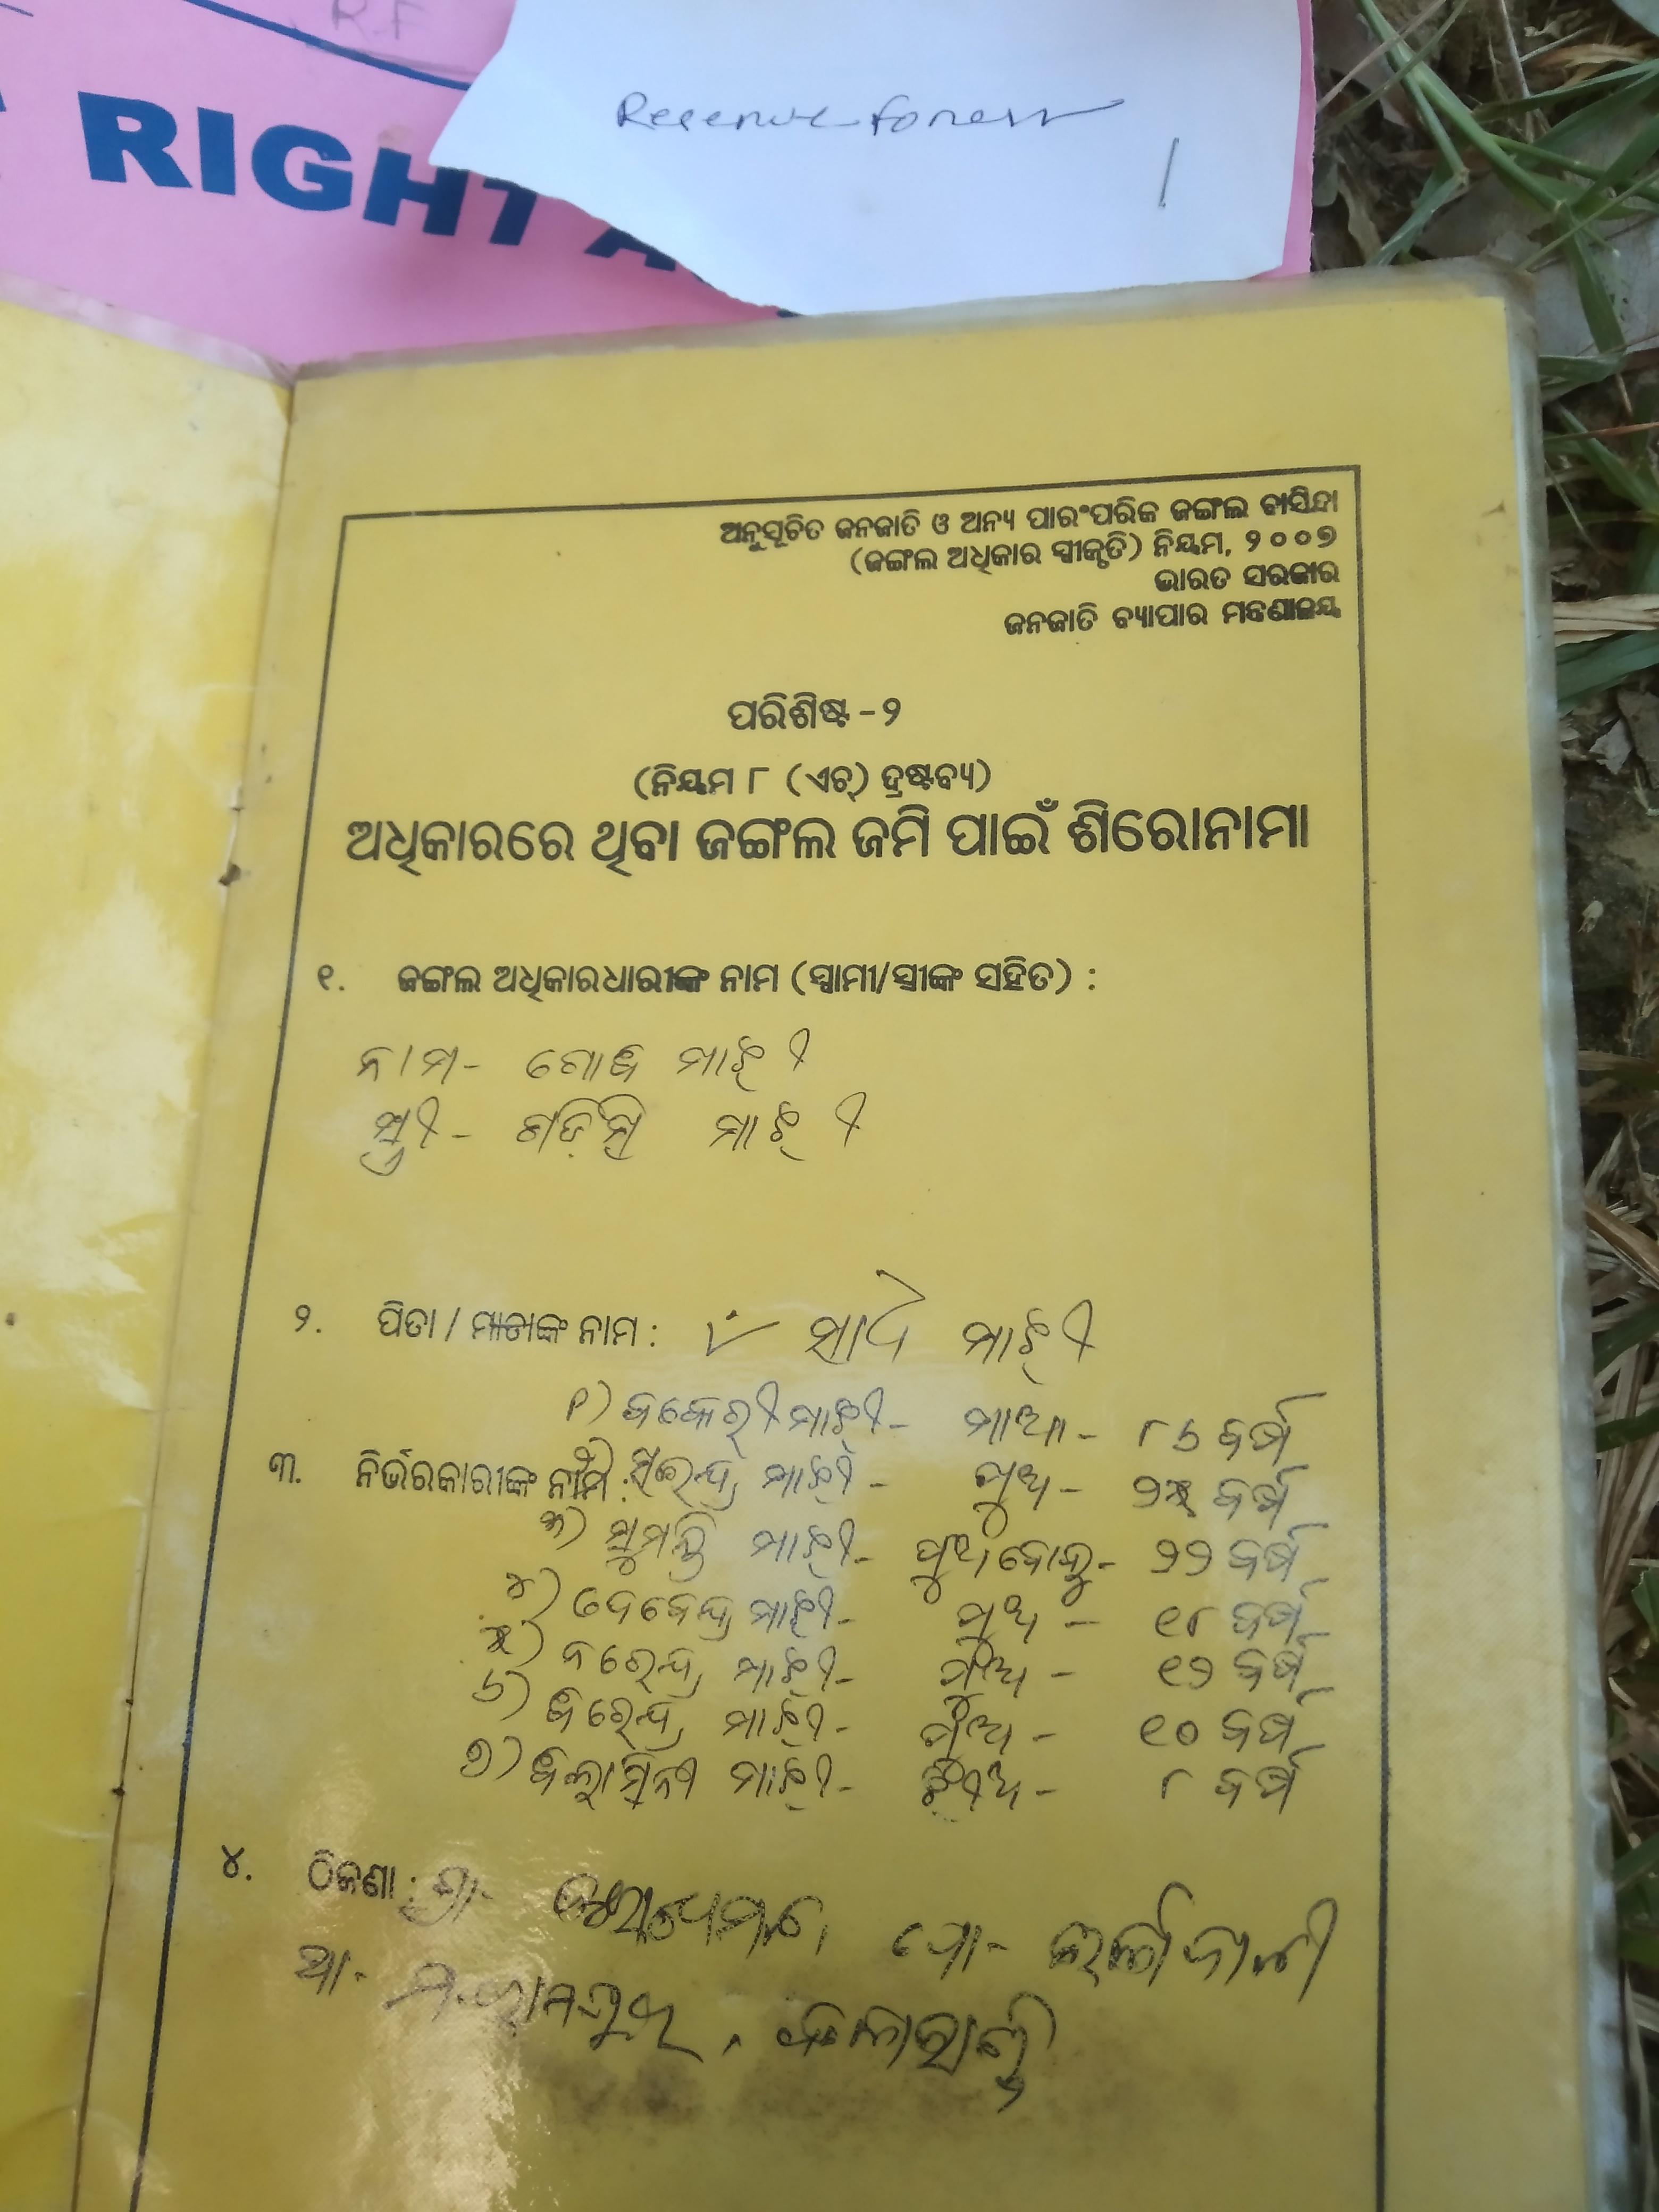 RF
RIGHT A
Reserve forest
ଅନୁସୂଚିତ ଜନଜାତି ଓ ଅନ୍ୟ ପାରଂପରିକ ଜଙ୍ଗଲ ବାସିନ୍ଦା
(ଜଙ୍ଗଲ ଅଧିକାର ସ୍ୱୀକୃତି) ନିୟମ, ୨୦୦୭
ଭାରତ ସରକାର
ଜନଜାତି ବ୍ୟାପାର ମନ୍ତ୍ରଣାଳୟ
ପରିଶିଷ୍ଟ -୨
(ନିୟମ ୮ (ଏଚ୍) ଦ୍ରଷ୍ଟବ୍ୟ)
ଅଧିକାରରେ ଥିବା ଜଙ୍ଗଲ ଜମି ପାଇଁ ଶିରୋନାମା
୧. ଜଙ୍ଗଲ ଅଧିକାରଧାରୀଙ୍କ ନାମ (ସ୍ୱାମୀ/ସ୍ତ୍ରୀଙ୍କ ସହିତ) :
ନାମ- ମାଝୀ
ସ୍ତ୍ରୀ- ମାଝୀ
୨. ପିତା / ମାତାଙ୍କ ନାମ : ମାଝୀ
୧) ମାଝୀ- ମାଆ- ୮୬ ବର୍ଷ
୩. ନିର୍ଭରକାରୀଙ୍କ ନାମ : ସୁରେନ୍ଦ୍ର ମାଝୀ- ପୁଅ- ୨୫ ବର୍ଷ
୩) ସୁମନ୍ତି ମାଝୀ- ପୁଅବୋହୁ- ୨୨ ବର୍ଷ
୪) ଦେବେନ୍ଦ୍ର ମାଝୀ- ପୁଅ - ୧୮ ବର୍ଷ
୫) ନରେନ୍ଦ୍ର ମାଝୀ- ପୁଅ - ୧୨ ବର୍ଷ
୬) ବିରେନ୍ଦ୍ର ମାଝୀ- ପୁଅ - ୧୦ ବର୍ଷ
୭) ବିଲାସିନୀ ମାଝୀ- ଝିଅ - ୮ ବର୍ଷ
୪. ଠିକଣା : ଗ୍ରା- ପୋ-
ଥା-